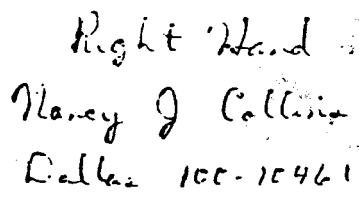 Right Hand
Nancy J Collins
Dallas 100-10461